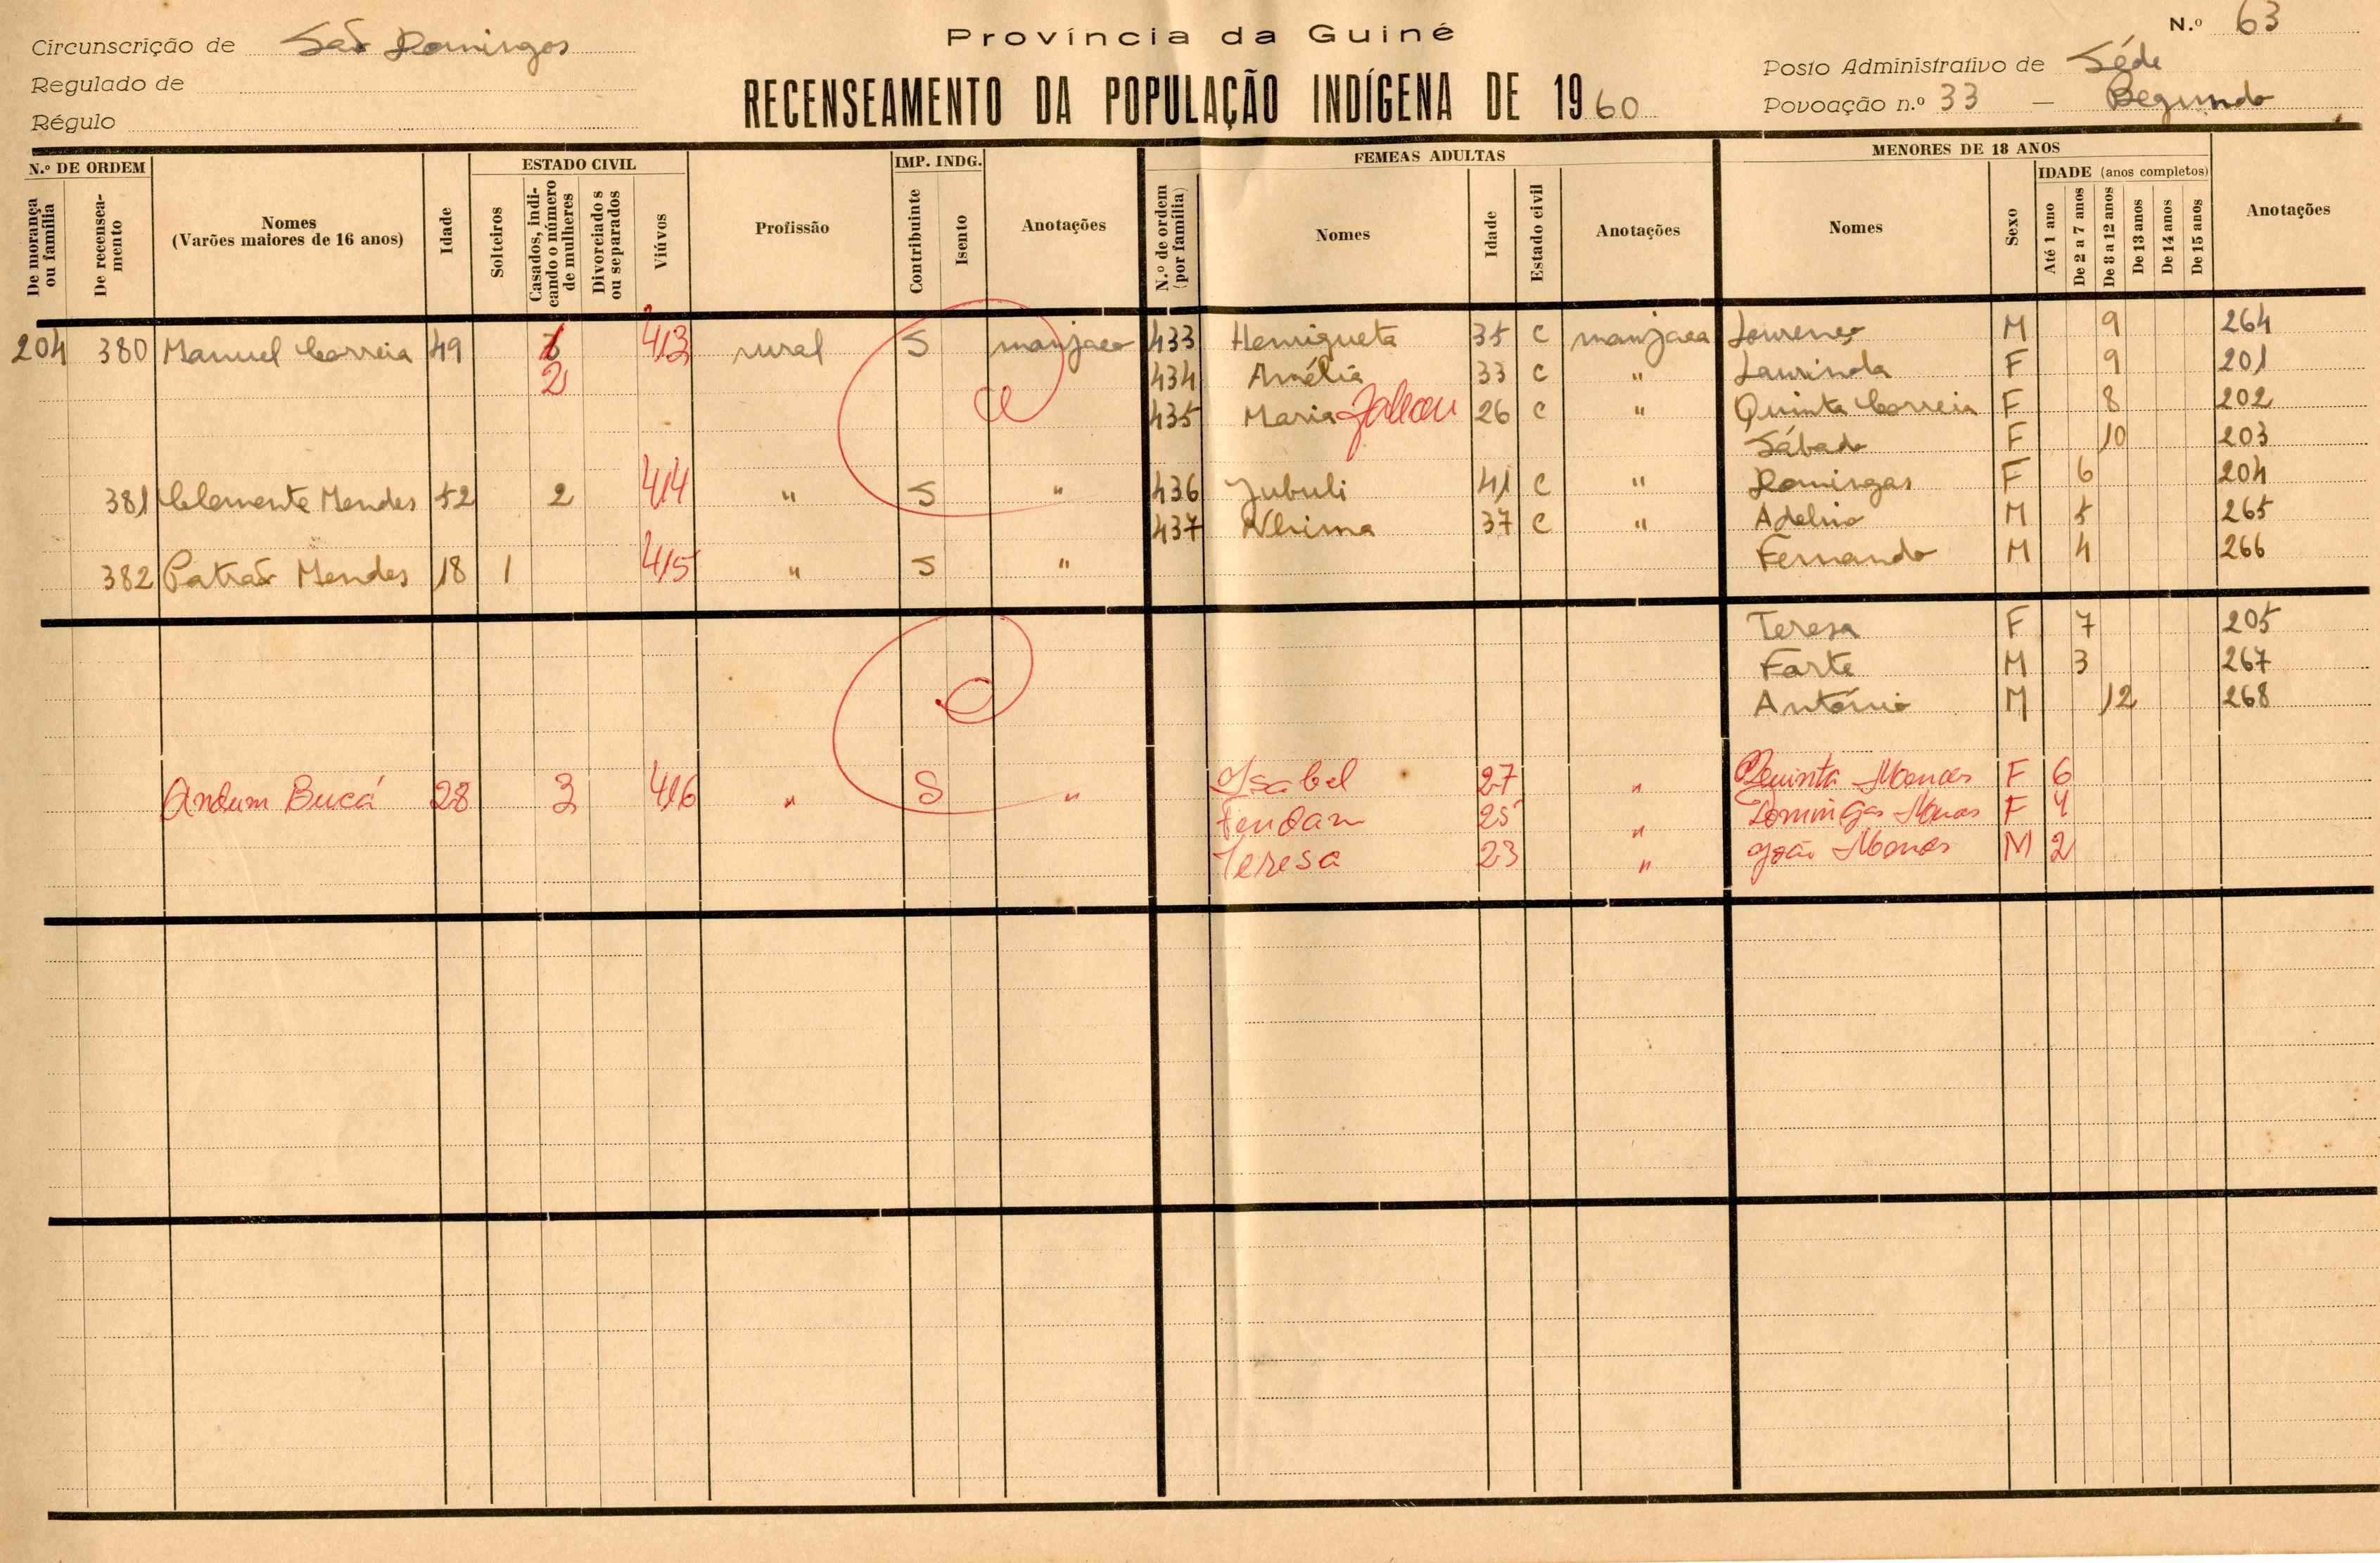 Província da Guiné
N.º 63
Circunscrição de São Domingos
Regulado de
Régulo
RECENSEAMENTO DA POPULAÇÃO INDÍGENA DE 1960
Posto Administrativo de Séde
Povoação n.º 33 — Begunda
N.º DE ORDEM
De morança ou família
De recenseamento
Nomes
(Varões maiores de 16 anos)
Idade
ESTADO CIVIL
Solteiros
Casados, indicando o número de mulheres
Divorciados ou separados
Viúvos
Profissão
IMP. INDG.
Contribuinte
Isento
Anotações
FEMEAS ADULTAS
N.º de ordem (por família)
Nomes
Idade
Estado civil
Anotações
MENORES DE 18 ANOS
Nomes
Sexo
IDADE (anos completos)
Até 1 ano
De 2 a 7 anos
De 8 a 12 anos
De 13 anos
De 14 anos
De 15 anos
Anotações
204 380 Manuel Correia 49 3 413 rural S manjaco 433 Henriqueta 35 C manjaca Lourenço M 9 264
2 434 Amélia 33 C " Laurinda F 9 201
435 Maria 26 C " Quinta Correia F 8 202
Sábado F 10 203
381 Clemente Mendes 52 2 414 " S " 436 Jubuli 41 C " Domingas F 6 204
437 Nhima 37 C " Adelino M 5 265
382 Patrão Mendes 18 1 415 " S " Fernando M 4 266
Teresa F 7 205
Farte M 3 267
António M 12 268
Andum Bucá 28 3 416 " S " Isabel 27 " Quinta F 6
Fendan 25 " Domingas F 4
Teresa 23 " João M 2